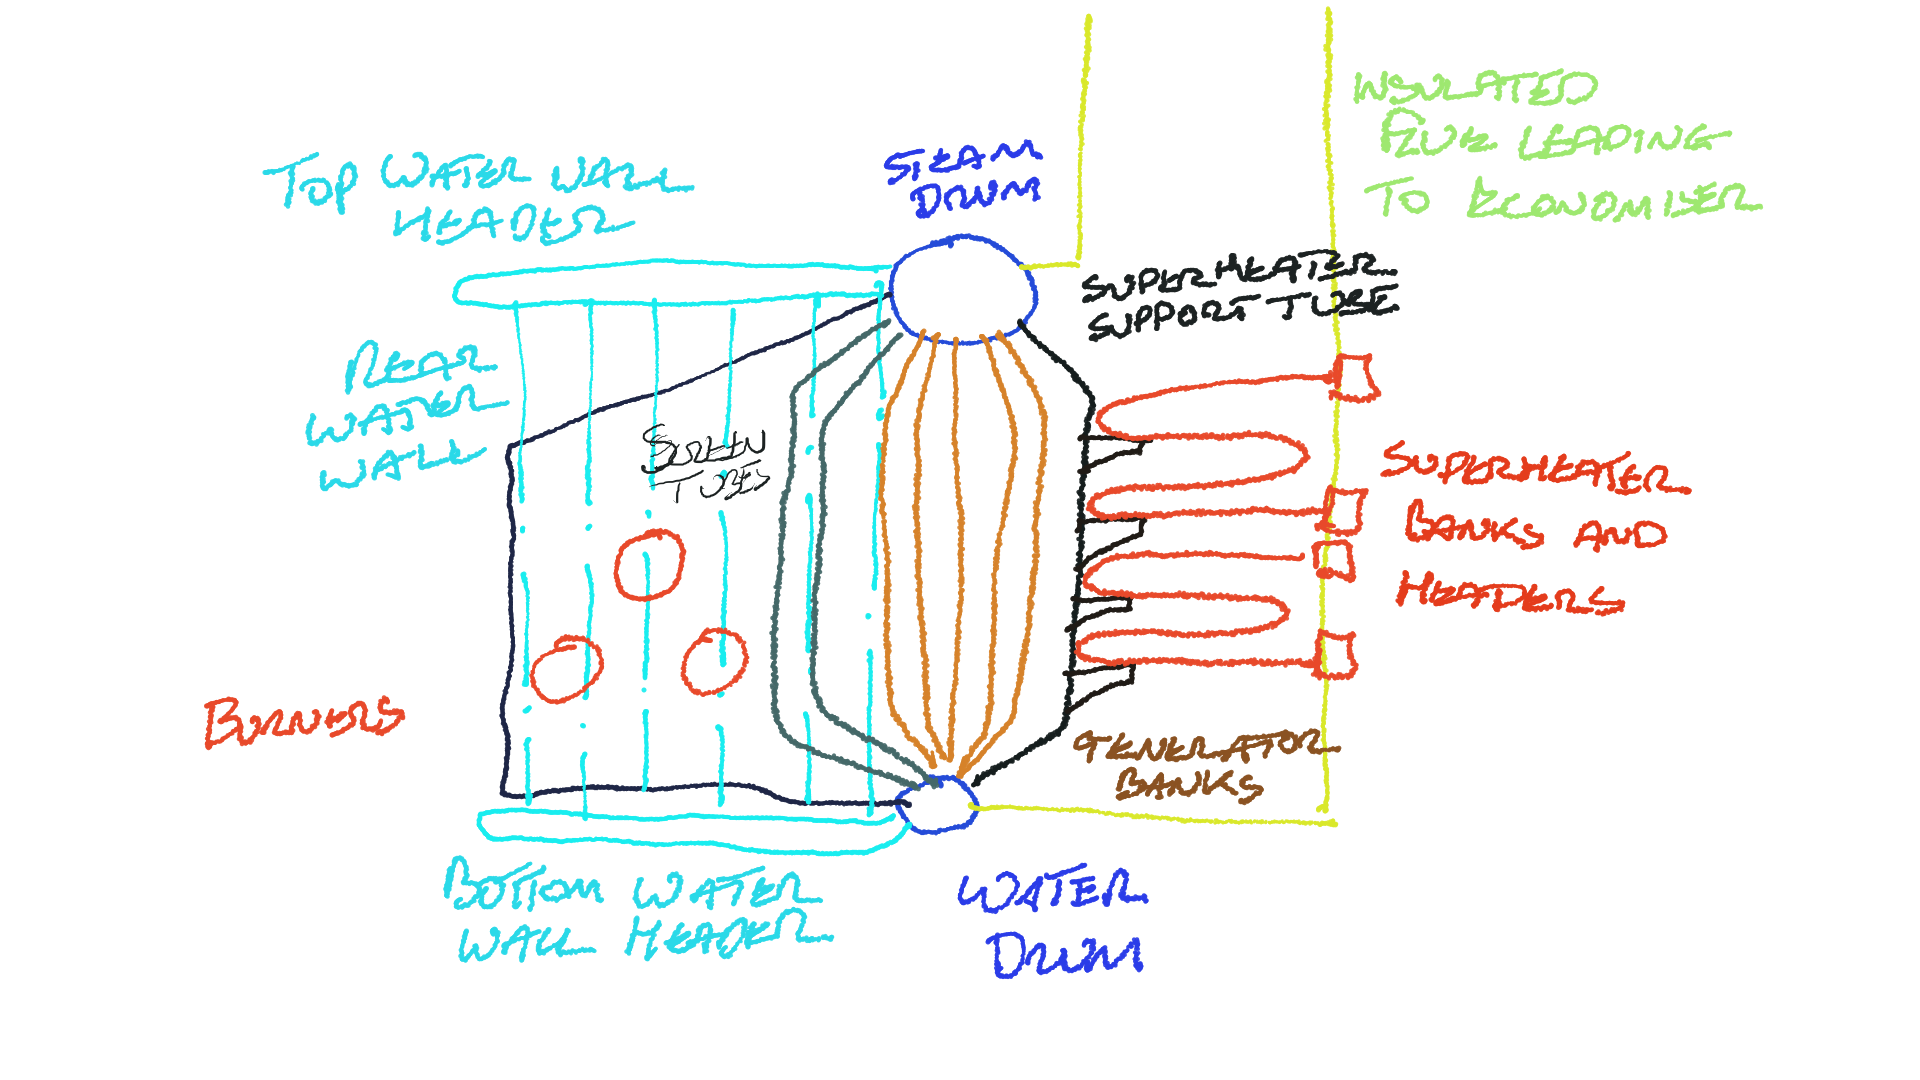 TOP WATER WALL
HEADER
STEAM
DRUM
INSULATED
FLUE LEADING
TO ECONOMISER
SUPERHEATER
SUPPORT TUBE
REAR
WATER
WALL
SCREEN
TUBES
SUPERHEATER
BANKS AND
HEADERS
BURNERS
GENERATOR
BANKS
BOTTOM WATER
WALL HEADER
WATER
DRUM